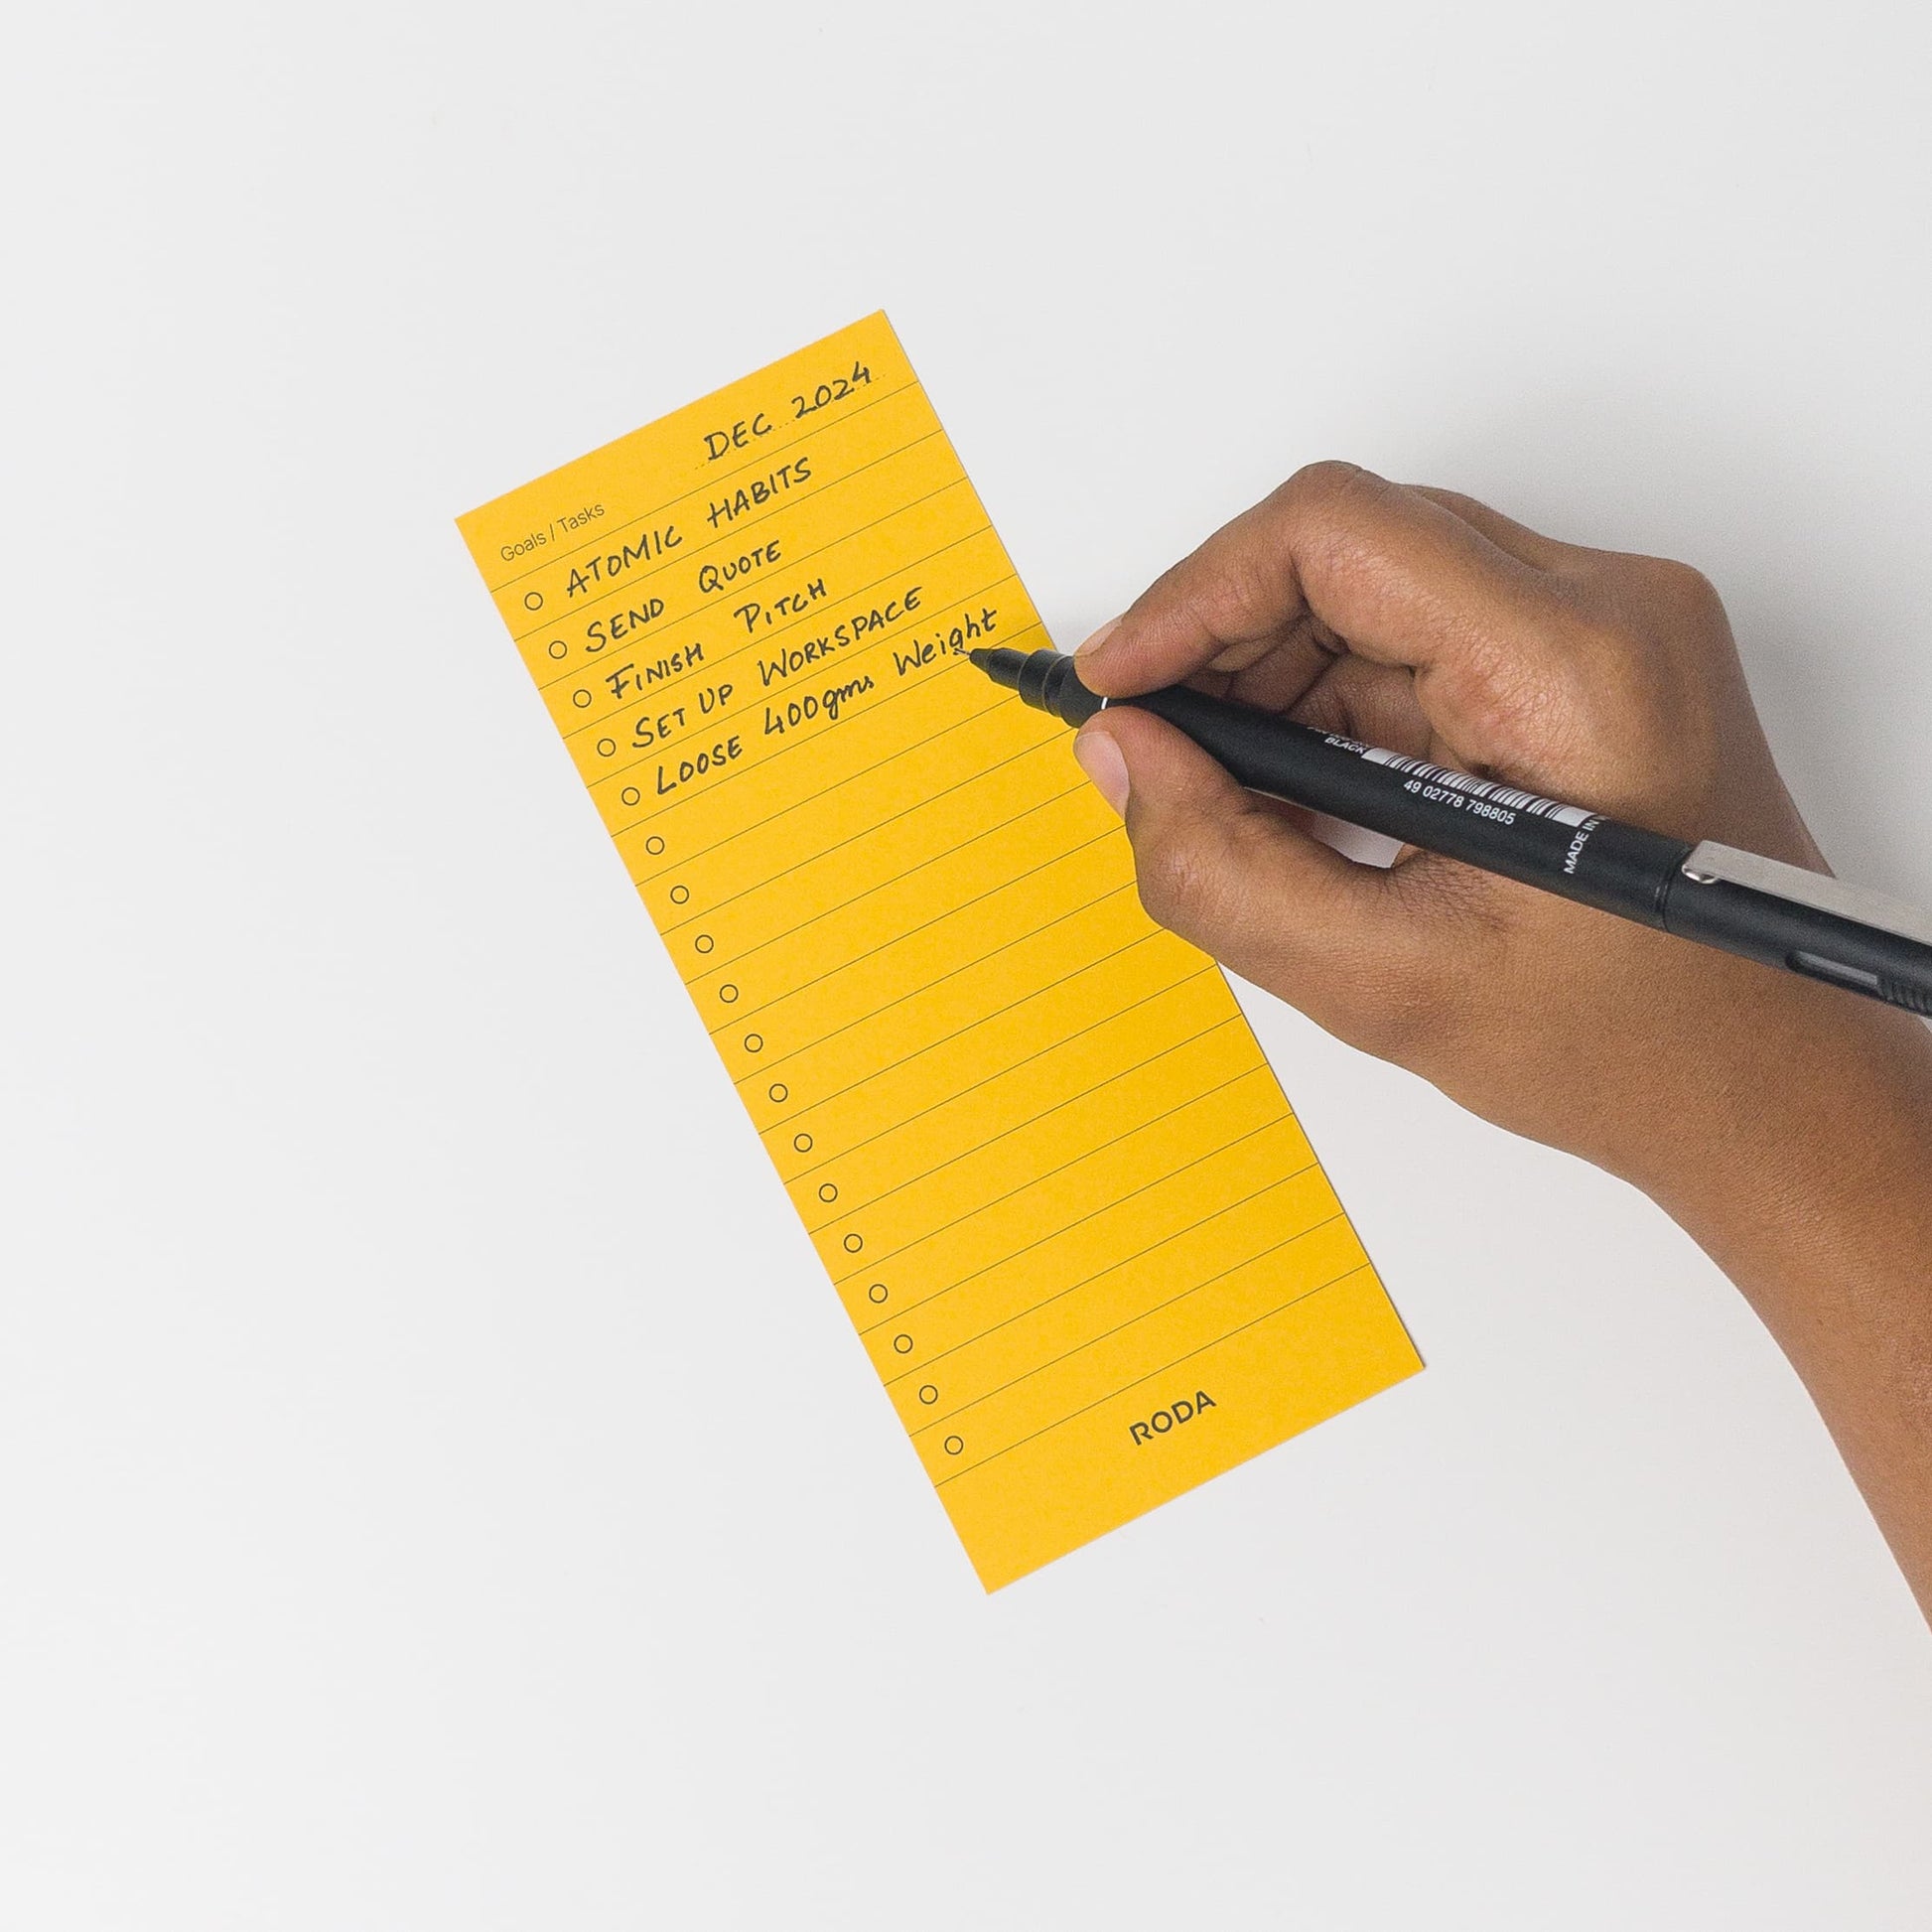 DEC 2024
Goals / Tasks
ATOMIC HABITS
SEND QUOTE
FINISH PITCH
SET UP WORKSPACE
LOOSE 400gms Weight
RODA
BLACK
49 02778 798805
MADE IN